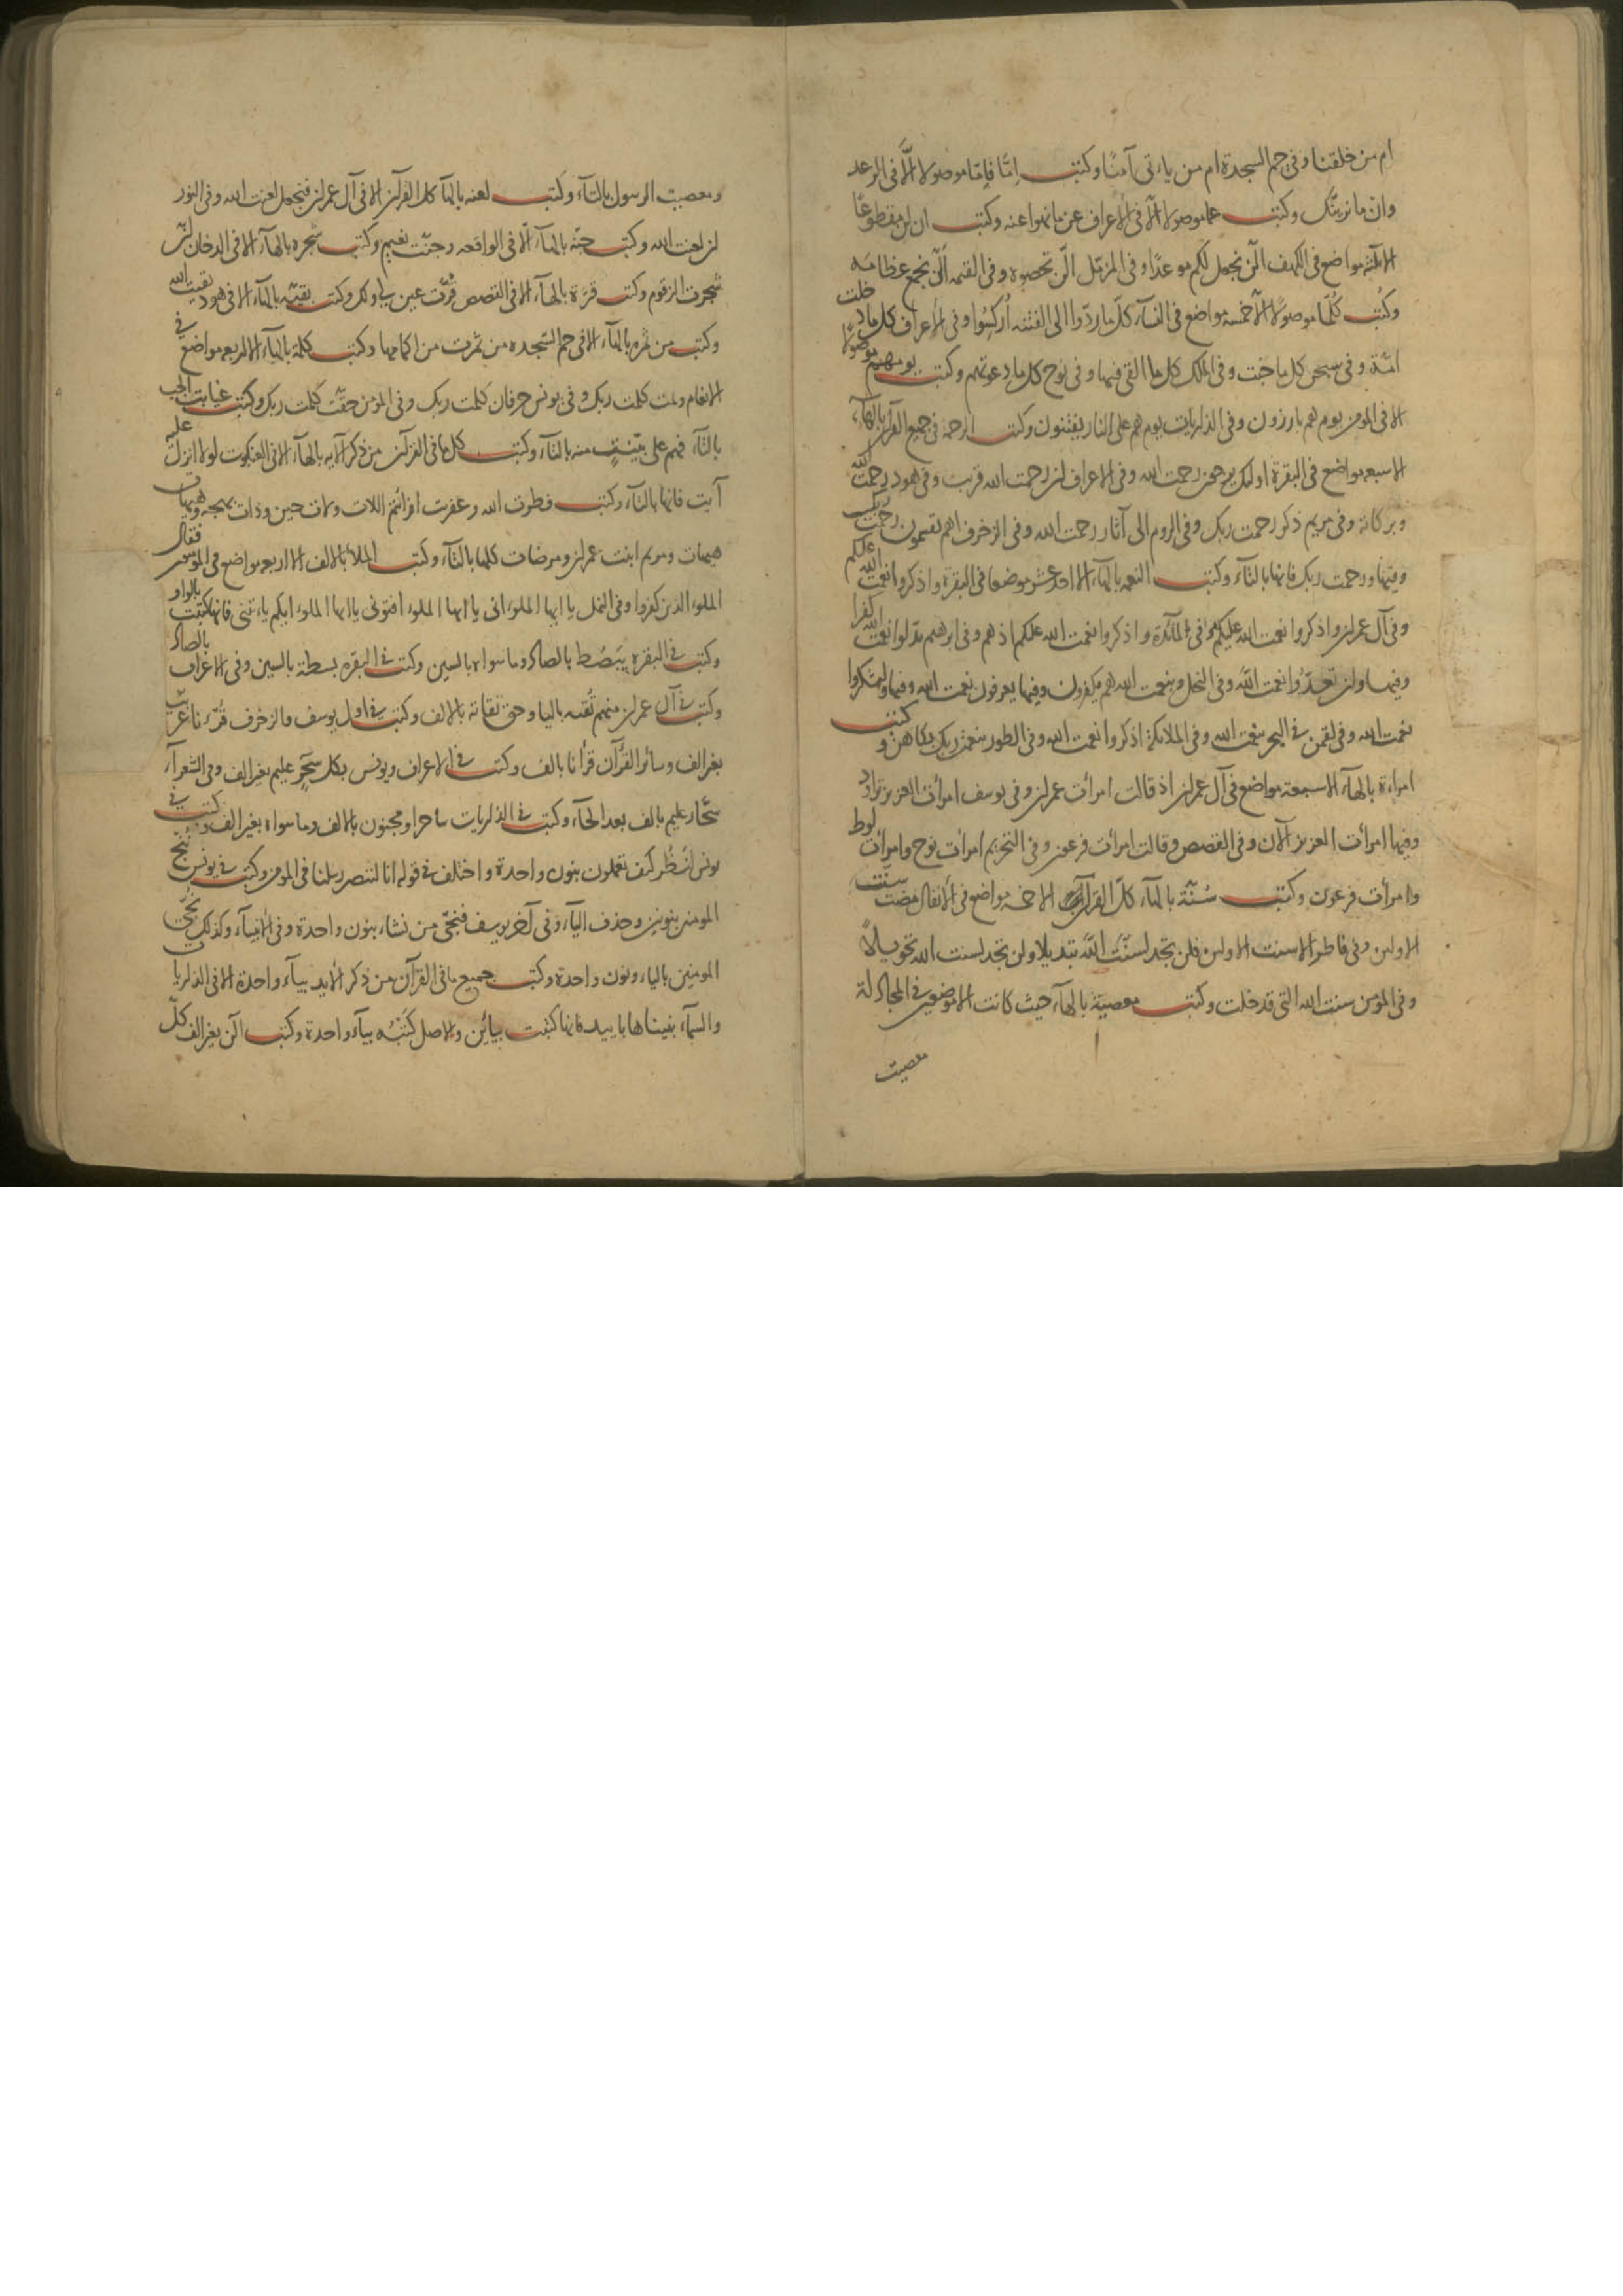 ام من خلقنا وفى حم السجدة ام من ياءتى آمنًا وكتب اِمَّا فاِمَّا موصولا الَّا فى الرعد
وان ما نرينّك وكتب عما موصولا الّا فى الاعراف عن ما نهوا عنه وكتب ان لن مقطوعًا
الا ثلثة مواضع فى الكهف الّن نجعل لكم موعدًا وفى المزمّل الّن تحصوه وفى القيمه الّن نجمع عظامه
وكُتب كُلّما موصولًا الّا خمسة مواضع فى النسآء كلّ ما ردّوا الى الفتنه اُركسُوا وفى الاعراف كل ما دخلت
امّة وفى سبحن كل ما خبت وفى الملك كل ما القى فيها وفى نوح كل ما دعوتهم وكتب يومهم موصولًا
الا فى المومن يوم هم بارزون وفى الذاريات يوم هم على النار يفتنون وكتب الرحمة فى جميع القرآن بالهآء
الا سبعه مواضع فى البقرة اولئك يرجون رحمت الله وفى الاعراف ان رحمت الله قريب وفى هود رحمتُ الله
وبركاته وفى مريم ذكر رحمت ربك وفى الروم الى آثار رحمت الله وفى الزخرف اهم يقسمون رحمت ربك
وفيها ورحمت ربك فانها بالتآء وكتب النعمه بالهآء الا احد عشر موضعا فى البقرة واذكروا نعمت الله عليكم
وفى آل عمران واذكروا نعمت الله عليكم وفى المآئدة واذكروا نعمت الله عليكم اذ هم وفى ابرهيم بدّلوا نعمت الله كفرا
وفيها وان تعدّوا نعمت اللّه وفى النحل وبنعمت الله هم يكفرون وفيها يعرفون نعمت الله وفيها واشكروا
نعمت الله وفى لقمن فى البحر بنعمت الله وفى الملائكة اذكروا نعمت الله وفى الطور بنعمت ربك بكاهن وكتب
امراءة بالهآء الا سبعة مواضع فى آل عمران اذ قالت امرأت عمران وفى يوسف امرأت العزيز تراود
وفيها امرأت العزيز الآن وفى القصص وقالت امرأت فرعون وفى التحريم امرأت نوح وامرأت لوط
وامرأت فرعون وكتب سُنّة بالهآء كلّ القرآن الا خمسة مواضع فى الانفال مضت سنّت
الاولين وفى فاطر الا سنت الاولين فلن تجد لسنّت اللّه تبديلا ولن تجد لسنت الله تحويلًا
وفى المؤمن سنت الله التى قد خلت وكتب معصية بالهآء حيث كانت الا موضعين فى المجادلة
معصيت
ومعصيت الرسول بالتآء وكتب لعنه بالهآ كل القرآن الا فى آل عمران فنجعل لعنت الله وفى النور
ان لعنت الله وكتب جنّة بالهآء الّا فى الواقعه وجنّت نعيم وكتب شجره بالهآء الا فى الدخان انّ
شجرت الزقوم وكتب قرّة بالهآء الا فى القصص قرّت عين لى ولك وكتب بقيّه بالهآء الا فى هود بقيت الله
وكتب من ثمره بالهآء الا فى حم السّجده من ثمرت من اكمامها وكتب كلمة بالهآء الا اربعه مواضع فى
الانعام وتمت كلمت ربك وفى يونس حرفان كلمت ربك وفى المومن حقّت كلمت ربك وكتب غيابت الجب
بالتآء فهم على بيّنتٍ منه بالتآء وكتب كل ما فى القرآن من ذكر الآيه بالهآء الا فى العنكبوت لولا انزل عليه
آيت فانها بالتآء وكتب فطرت الله وعفريت افرائتم اللات ولات حين وذات بهجه وهيهات
هيهات ومريم ابنت عمران ومرضات كلها بالتآء وكتب الملأ بالالف الا اربعه مواضع فى المومنين فقال
الملوء الذين كفروا وفى النمل يا ايها الملوء انى يا ايها الملوء افتونى يا ايها الملوء ايكم ياءتينى فانها كتبت بالواو
وكتب فى البقره يبصُط بالصاد وما سواه بالسين وكتب فى البقره بسطة بالسين وفى الاعراف بالصاد
وكتب فى آل عمران منهم تُقيه باليا وحق تقاته بالالف وكتب فى اول يوسف والزخرف قُرءنا عربيًا
بغير الف وسائر القُرآن قرأنا بالف وكتب فى الاعراف ويونس بكل سحّرٍ عليم بغير الف وفى الشعرآء
سحّار عليم بالف بعد الحآء وكتب فى الذاريات ساحر او مجنون بالالف وما سواه بغير الف وكتب فى
يونس لنظُر كيف تعملون بنون واحدة واختلف فى قوله انا لننصر رسلنا فى المومن وكتب فى يونس ننج
المومنين بنونين وحذف اليآء وفى آخر يوسف فنجّى من نشاء بنون واحدة وفى الانبيآء وكذلك نجّى
المومنين بالياء ونون واحدة وكتب جميع ما فى القرآن من ذكر الايد بيآء واحدة الا فى الذاريات
والسمآء بنيناها باييد فانها كتبت بيائين والاصل كَتَبُه بيآء واحدة وكتب الٓن بغير الف كلّ